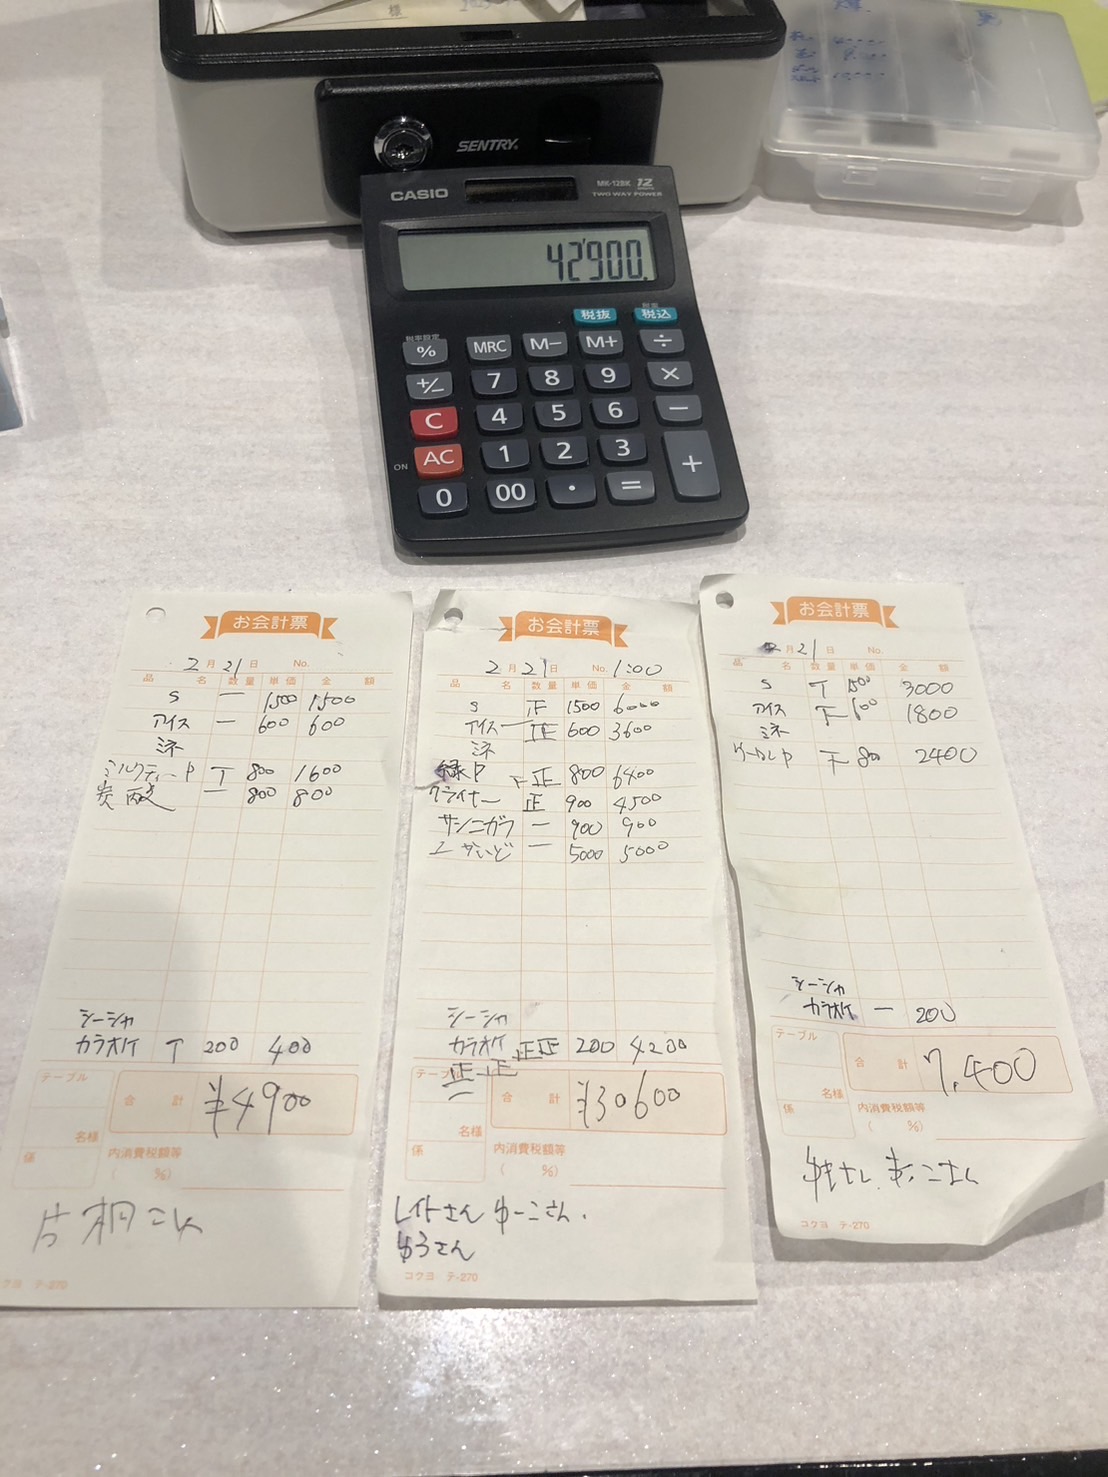 様
SENTRY
CASIO
MK-12BK 12 DIGITS
TWO WAY POWER
42'900.
税抜
税込
税率設定
% MRC M− M+ ÷
+/− 7 8 9 ×
C 4 5 6 −
ON AC 1 2 3 +
0 00 ・ =
お会計票
2月21日 No.
品名 数量 単価 金額
S 一 1500 1500
アイス 一 600 600
ミネ
ミルクティーP T 800 1600
炭酸 一 800 800
シーシャ
カラオケ T 200 400
テーブル
合計 ¥4900
名様
係
内消費税額等
( %)
片桐さん
コクヨ テ-270
お会計票
2月21日 No. 1:00
品名 数量 単価 金額
S 正 1500 6000
アイス 一正 600 3600
ミネ
緑P 下正 800 6400
クライナー 正 900 4500
サンニガラ 一 900 900
一 5000 5000
シーシャ
カラオケ 正正 200 4200
正正
一
テーブル
合計 ¥30600
名様
係
内消費税額等
( %)
レイトさん ゆーこさん.
ゆうさん
コクヨ テ-270
お会計票
2月21日 No.
品名 数量 単価 金額
S T 1500 3000
アイス 下 600 1800
ミネ
下 800 2400
シーシャ
カラオケ 一 200
テーブル
合計 7,400
名様
係
内消費税額等
( %)
コクヨ テ-270